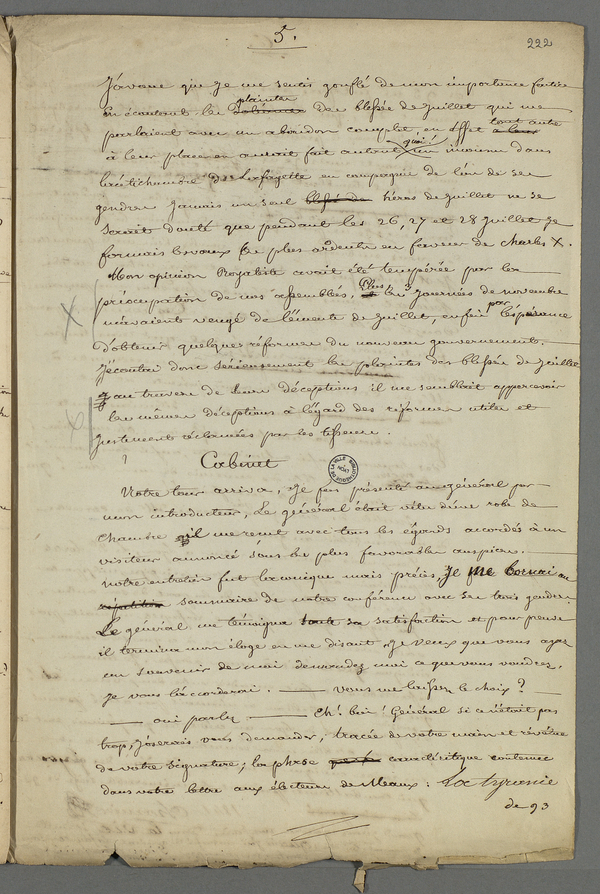 5.
222
J'avoue que je me sentis gonflé de mon importance
En écoutant les plaintes des blessés de Juillet qui me
parlaient avec un abandon complet, en effet tout autre
à leur place en aurait fait autant qui! un inconnu dans
de Lafayette en compagnie de l'un de ses
gendres jamais un seul blessé de héros de Juillet ne se
serait douté que pendant les 26, 27 et 28 Juillet je
formais les vœux les plus ardents en faveur de Charles X.
Mon opinion Royaliste avait été tempérée par la
préocupation de nos assemblés, Plus les 3 Journées de novembre
m'avaient vengé de l'émeute de Juillet, enfin par l'éspérance
d'obtenir quelques réformes du nouveau gouvernement.
J'écoutai donc sérieusement les plaintes des blessés de Juillet
au travers de leurs déceptions il me semblait appercevoir
les mêmes déceptions à l'égard des réformes utiles et
justements réclamées par les tisseurs.
Cabinet
Notre tour arriva, Je fus présenté au général par
mon introducteur, Le général était vêtu d'une robe de
chambre il me reçut avec tous les égards accordés à un
visiteur annoncé sous les plus favorables auspices.
notre entretien fut laconique mais précis, Je me bornai au
répétition sommaire de notre conférence avec ses trois gendres.
Le général me témoigna toute sa satisfaction et pour preuve
il termina mon éloge en me disant, Je veux que vous ayez
un souvenir de moi demandez moi ce que vous voudrez,
Je vous l'accorderai. — vous me laissez le choix?
— oui parlez — Eh! bien! Général si ce n'était pas
trop, J'oserais vous demander, tracée de votre main et révêtue
de votre signature; la phrase caractéritique contenue
dans votre lettre aux électeurs de Meaux: La tyranie
de 93
BIBLIOTHEQUE DE LA VILLE LYON